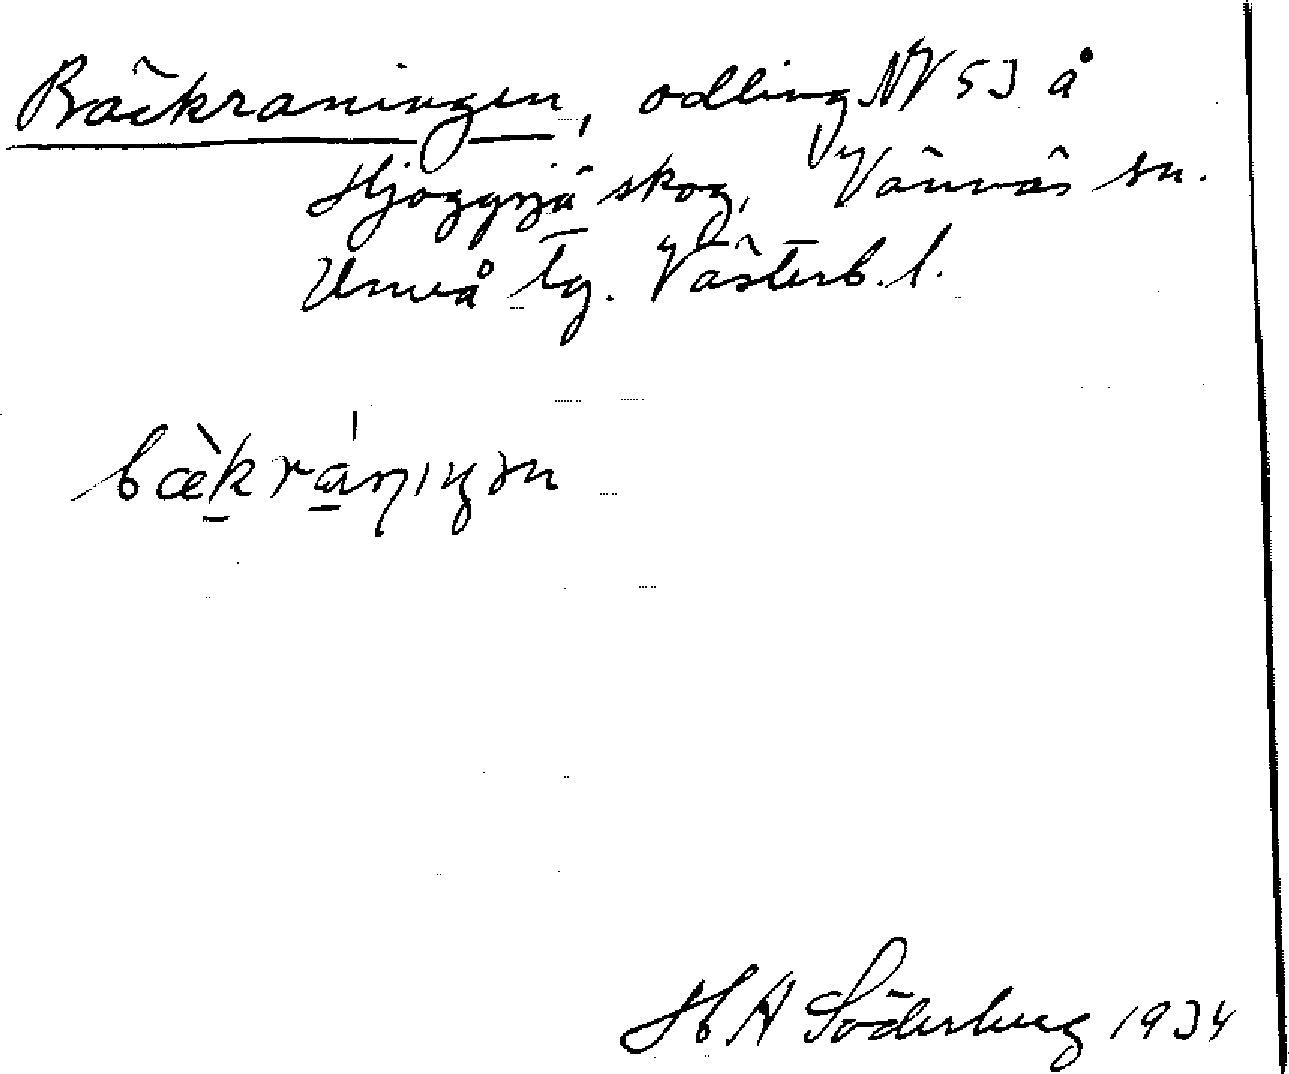 Bäckraningen, odling NV 53 å
Hjoggsjö skog, Vännäs sn.
Umeå tg. Västerb. l.
H A Söderberg 1934